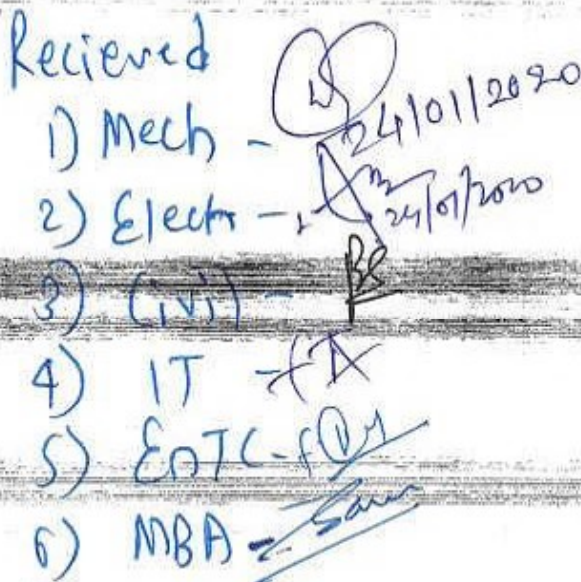 Recieved
1) Mech - 24/01/2020
2) Elect - 24/01/2020
3) Civil -
4) IT -
5) EnTC -
6) MBA -